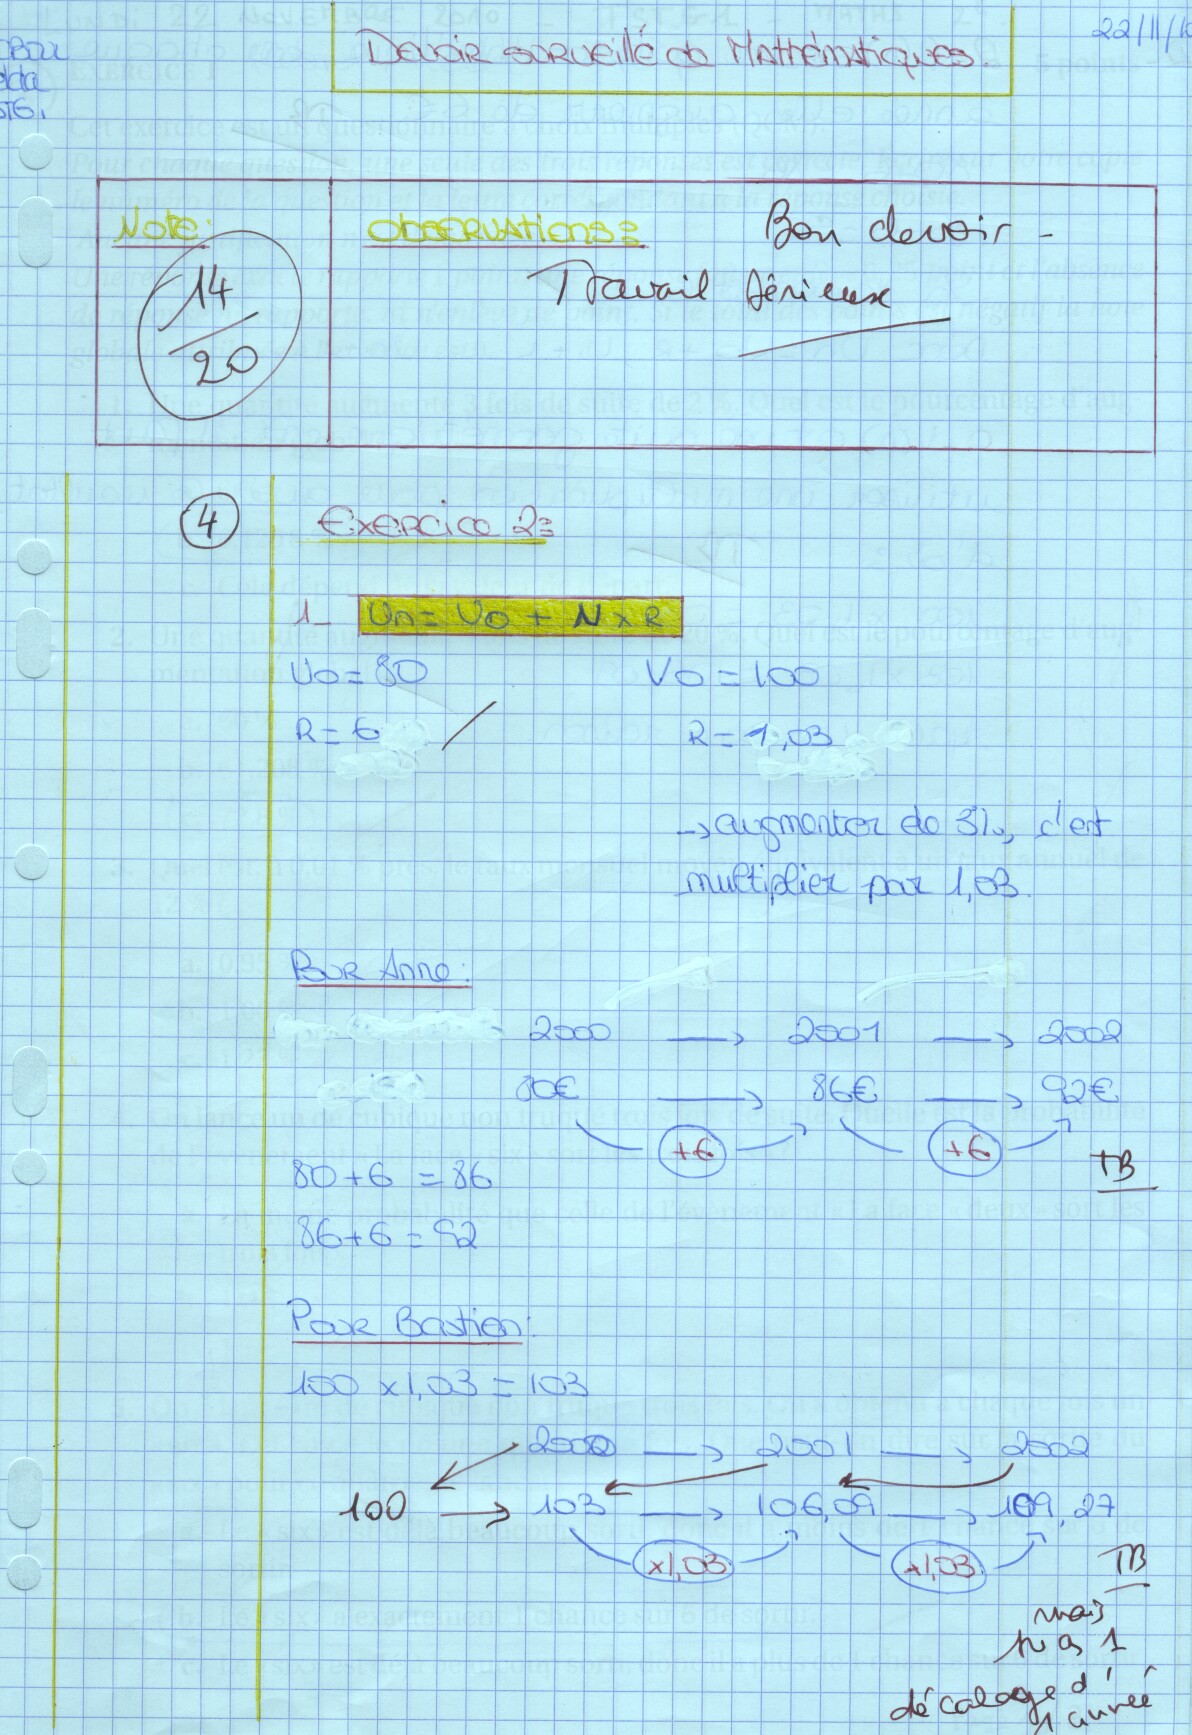 Devoir surveillé de Mathématiques.
22/11/1
Note:
14
20
Observations:
Bon devoir -
Travail sérieux
4
Exercice 2:
1_ Un = U0 + N x R
U0 = 80
V0 = 100
R = 6
R = 1,03
→ augmenter de 3%, c'est
multiplier par 1,03.
Pour Anne:
2000 → 2001 → 2002
80€ → 86€ → 92€
+6 +6
TB
80+6 = 86
86+6 = 92
Pour Bastien:
100 x1,03 = 103
2000 → 2001 → 2002
100 → 103 → 106,09 → 109,27
x1,03 x1,03
TB
mais
décalage d'
1 année